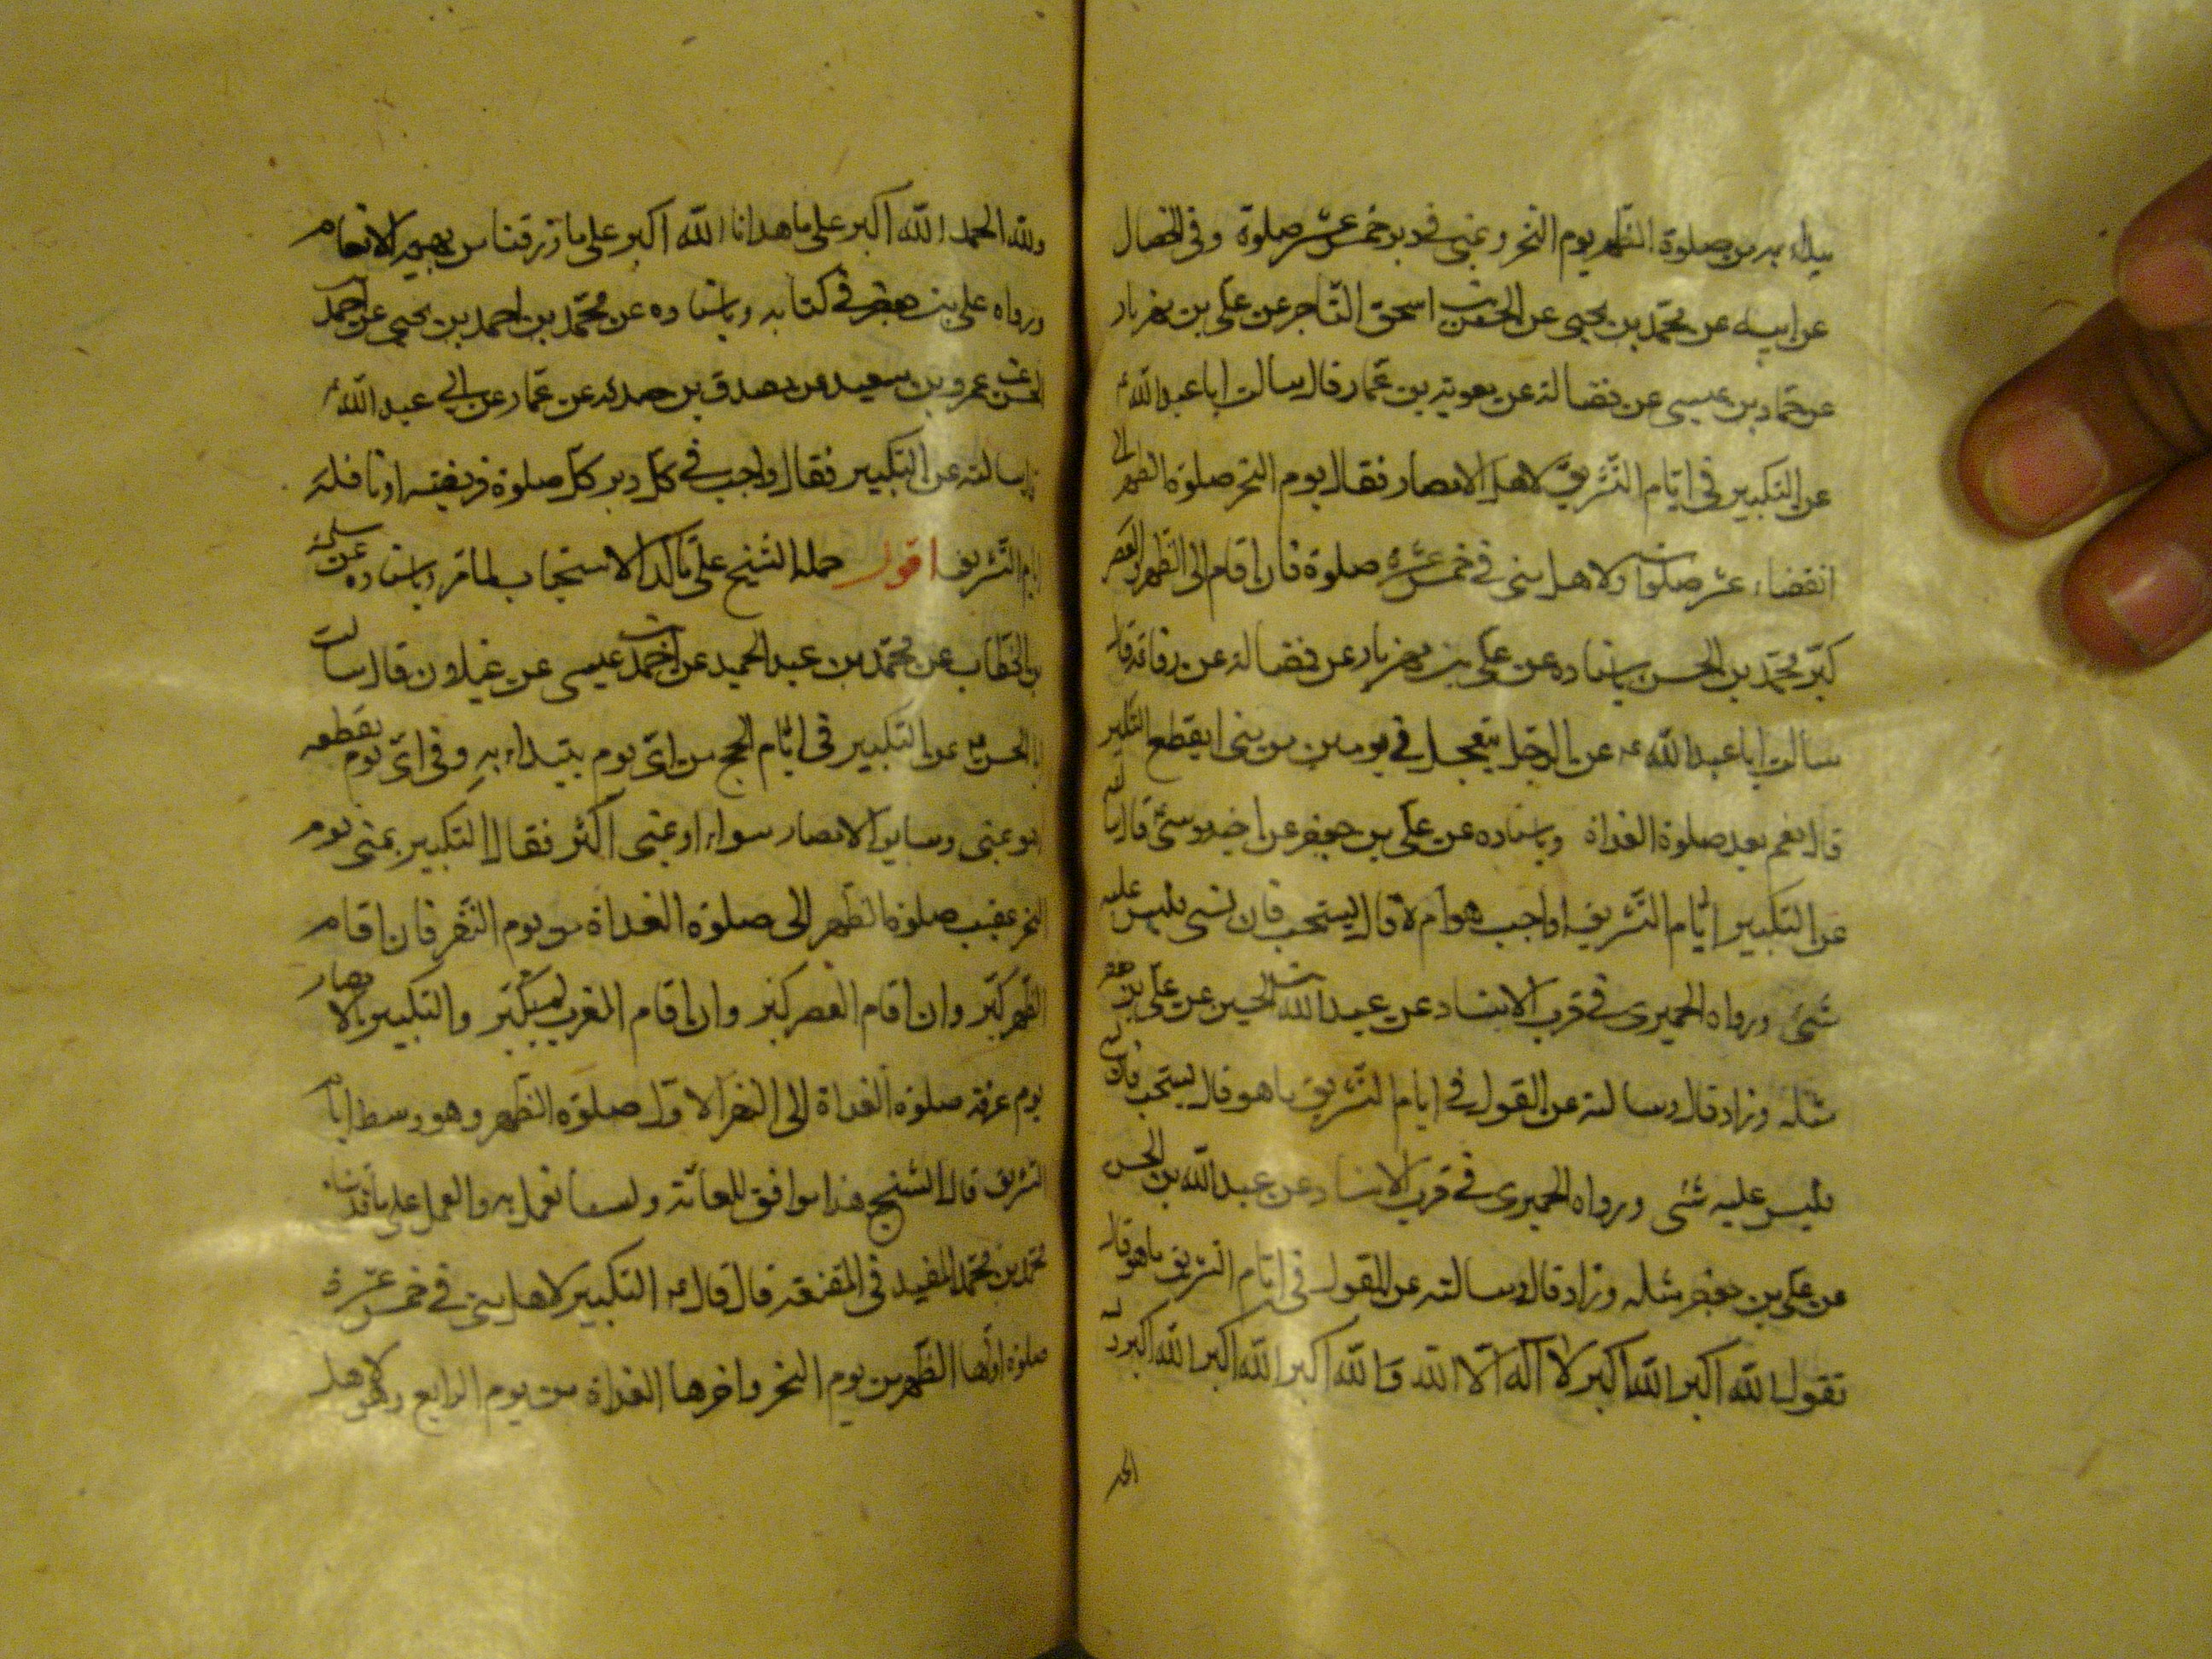 يبدأ به من صلوة الظهر يوم النحر وبمنى في دبر خمس عشر صلوة وفي الخصال
عن ابيه عن محمد بن يحيى عن الحسن بن اسحق التاجر عن علي بن مهزيار
عن حماد بن عيسى عن فضالة عن معوية بن عمار قال سالت ابا عبدالله ع
عن التكبير في ايام التشريق لاهل الامصار فقال يوم النحر صلوة الظهر الى
انقضاء عشر صلوات ولاهل منى في خمس عشرة صلوة فان اقام الى الظهر والعصر
كبر محمد بن الحسن باسناده عن علي بن مهزيار عن فضالة عن رفاعة قال
سالت ابا عبدالله ع عن الرجل يتعجل في يومين من منى ايقطع التكبير
قال نعم بعد صلوة الغداة وباسناده عن علي بن جعفر عن اخيه موسى قال سالته
عن التكبير ايام التشريق اواجب هو ام لا قال يستحب فان نسي فليس عليه
شئ ورواه الحميري في قرب الاسناد عن عبدالله بن الحسن عن علي بن جعفر
مثله وزاد قال وسالته عن القول في ايام التشريق ما هو قال يستحب فان نسي
فليس عليه شئ ورواه الحميري في قرب الاسناد عن عبدالله بن الحسن
عن علي بن جعفر مثله وزاد قال وسالته عن القول في ايام التشريق ما هو قال
تقول الله اكبر الله اكبر لا اله الا الله والله اكبر الله اكبر الله اكبر
الحمد
ولله الحمد الله اكبر على ما هدانا الله اكبر على ما رزقنا من بهيمة الانعام
ورواه علي بن جعفر في كتابه وباسناده عن محمد بن احمد بن يحيى عن احمد
بن الحسن عن عمرو بن سعيد عن مصدق بن صدقه عن عمار عن ابي عبدالله ع
قال سالته عن التكبير فقال واجب في كل دبر كل صلوة فريضة او نافلة
ايام التشريق اقول حمله الشيخ على تاكد الاستحباب لما مر وباسناده عن
بن الخطاب عن محمد بن عبد الحميد عن احمد بن عيسى عن غيلان قال سالت
ابا الحسن ع عن التكبير في ايام الحج من اي يوم يبتداء به وفي اي يوم يقطعه
هو بمنى وساير الامصار سواء او بمنى اكثر فقال التكبير بمنى يوم
النحر عقيب صلوة الظهر الى صلوة الغداة من يوم النفر فان اقام
الظهر كبر وان اقام العصر كبر وان اقام المغرب لم يكبر والتكبير بالامصار
يوم عرفة صلوة الغداة الى النفر الاول صلوة الظهر وهو وسط ايام
التشريق قال الشيخ هذا موافق للعامة ولسنا نعمل به والعمل على ما قدمناه
محمد بن محمد المفيد في المقنعة قال قال ع التكبير لاهل منى في خمس عشرة
صلوة اولها الظهر من يوم النحر واخرها الغداة من يوم الرابع وهو لاهل